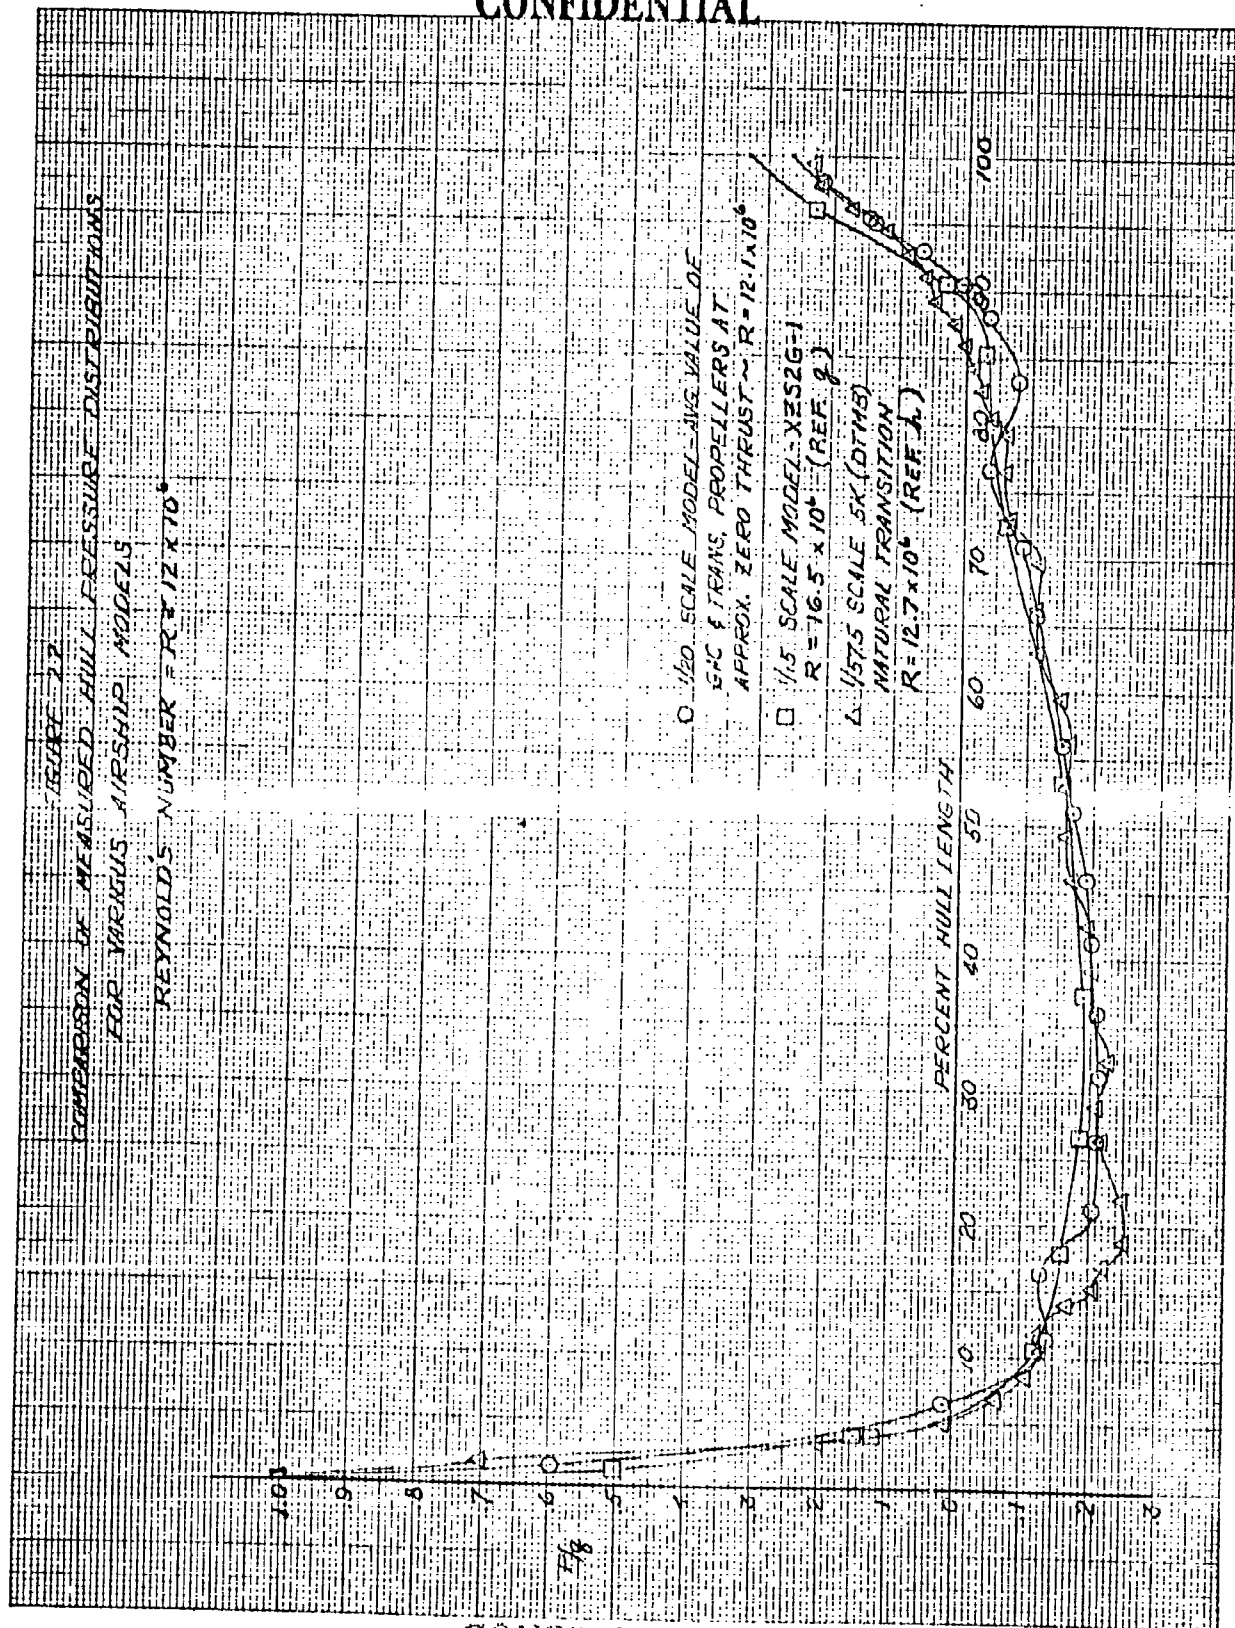 CONFIDENTIAL
FIGURE 22
COMPARISON OF MEASURED HULL PRESSURE DISTRIBUTIONS
FOR VARIOUS AIRSHIP MODELS
REYNOLD'S NUMBER = R ≅ 12 x 10⁶
○ 1/20 SCALE MODEL-AVG VALUE OF
G&C & TRANS, PROPELLERS AT
APPROX. ZERO THRUST ~ R = 12.1 x 10⁶
□ 1/15 SCALE MODEL-XZS2G-1
R = 16.5 x 10⁶ (REF. g)
△ 1/57.5 SCALE 5K (DTMB)
NATURAL TRANSITION
R = 12.7 x 10⁶ (REF. h)
P/q
1.0
.9
.8
.7
.6
.5
.4
.3
.2
.1
0
.1
.2
.3
PERCENT HULL LENGTH
10 20 30 40 50 60 70 80 90 100